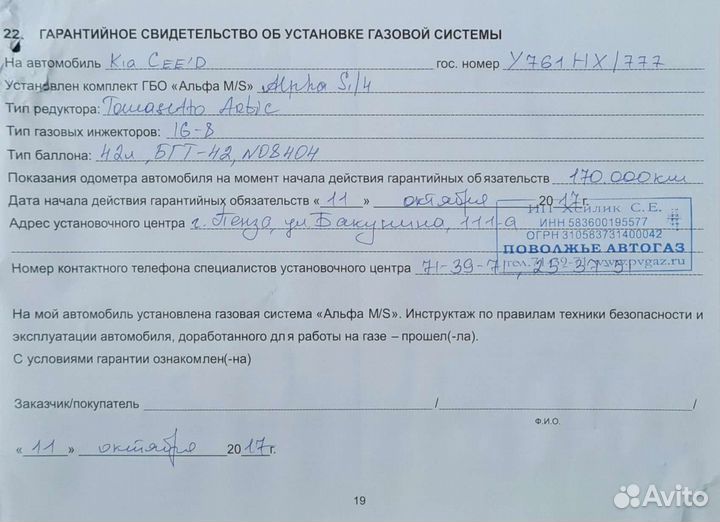 22. ГАРАНТИЙНОЕ СВИДЕТЕЛЬСТВО ОБ УСТАНОВКЕ ГАЗОВОЙ СИСТЕМЫ
На автомобиль Kia CEE'D гос. номер У761НХ/777
Установлен комплект ГБО «Альфа M/S» Alpha S/4
Тип редуктора: Tomasetto Artic
Тип газовых инжекторов: IG-8
Тип баллона: 42л, БГТ-42, N08404
Показания одометра автомобиля на момент начала действия гарантийных обязательств 170.000км
Дата начала действия гарантийных обязательств « 11 » октября 2017г.
ИП Хейлик С.Е.
ИНН 583600195577
Адрес установочного центра г. Пенза, ул Бакунина, 111-а
ОГРН 310583731400042
ПОВОЛЖЬЕ АВТОГАЗ
www.pvgaz.ru
Номер контактного телефона специалистов установочного центра 71-39-71, 25-37-51
На мой автомобиль установлена газовая система «Альфа M/S». Инструктаж по правилам техники безопасности и
эксплуатации автомобиля, доработанного для работы на газе – прошел(-ла).
С условиями гарантии ознакомлен(-на)
Заказчик/покупатель / /
Ф.И.О.
« 11 » октября 2017г.
19
Avito